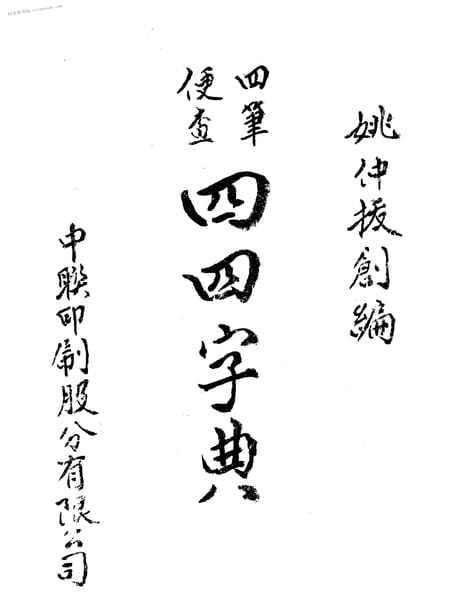 姚仲拔創編
四筆
便查
四四字典
中聯印刷股分有限公司